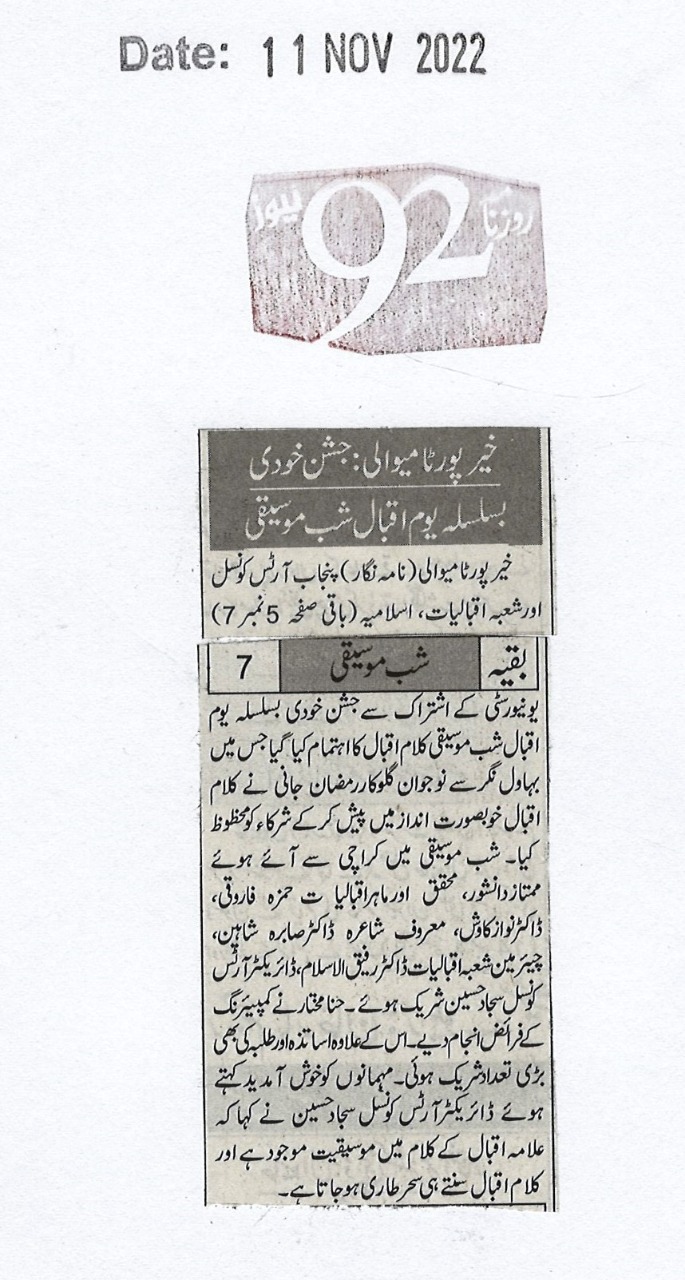 Date: 11 NOV 2022
روزنامہ 92 نیوز
خیرپورٹامیوالی: جشن خودی
بسلسلہ یوم اقبال شب موسیقی
خیرپورٹامیوالی (نامہ نگار) پنجاب آرٹس کونسل
اورشعبہ اقبالیات، اسلامیہ (باقی صفحہ 5 نمبر 7)
بقیہ شب موسیقی 7
یونیورسٹی کے اشتراک سے جشن خودی بسلسلہ یوم
اقبال شب موسیقی کلام اقبال کا اہتمام کیا گیا جس میں
بہاول نگر سے نوجوان گلوکار رمضان جانی نے کلام
اقبال خوبصورت انداز میں پیش کر کے شرکاء کو محظوظ
کیا۔ شب موسیقی میں کراچی سے آئے ہوئے
ممتاز دانشور، محقق اور ماہر اقبالیا ت حمزہ فاروقی،
ڈاکٹر نواز کاوش، معروف شاعرہ ڈاکٹر صابرہ شاہین،
چیئرمین شعبہ اقبالیات ڈاکٹر رفیق الاسلام، ڈائریکٹر آرٹس
کونسل سجاد حسین شریک ہوئے۔ حنا مختار نے کمپیئرنگ
کے فرائض انجام دیے۔ اس کے علاوہ اساتذہ اور طلبہ کی بھی
بڑی تعداد شریک ہوئی۔ مہمانوں کو خوش آمدید کہتے
ہوئے ڈائریکٹر آرٹس کونسل سجاد حسین نے کہا کہ
علامہ اقبال کے کلام میں موسیقیت موجود ہے اور
کلام اقبال سنتے ہی سحر طاری ہو جاتا ہے۔